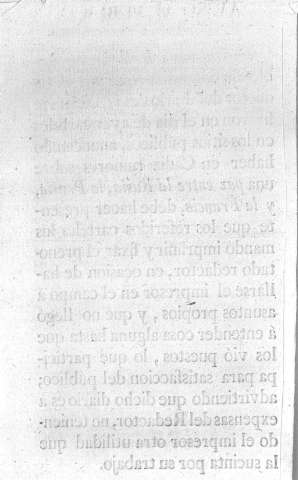 fixaron en el dia de ayer carteles
en los sitios públicos, anunciando
haber en Cadiz rumores sobre
una paz entre la Rusia, la Prusia,
y la Francia, debe hacer presen-
te que los referidos carteles los
mandó imprimir y fixar el preno-
tado redactor, en ocasion de ha-
llarse el impresor en el campo á
asuntos propios, y que no llegó
á entender cosa alguna hasta que
los vió puestos, lo que partici-
pa para satisfaccion del público;
advirtiendo que dicho diario es á
expensas del Redactor, no tenien-
do el impresor otra utilidad que
la sucinta por su trabajo.